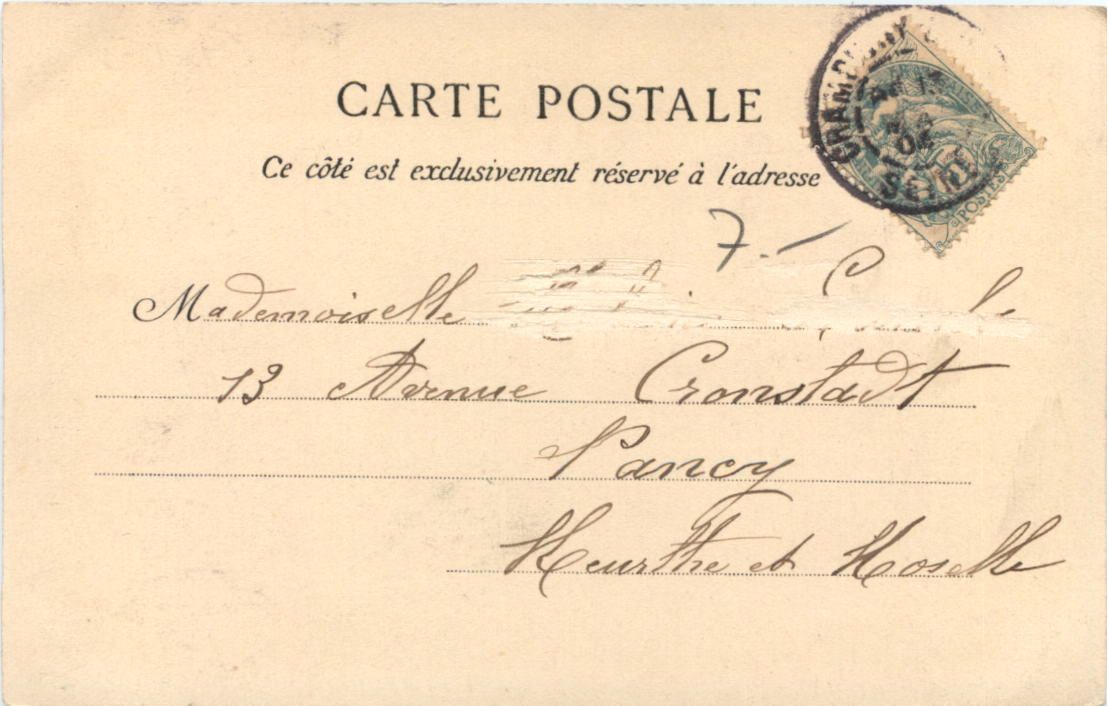 CARTE POSTALE
Ce côté est exclusivement réservé à l'adresse
7.-
Mademoiselle
13 Avenue Cronstadt
Nancy
Meurthe et Moselle
POSTES
04
SEINE